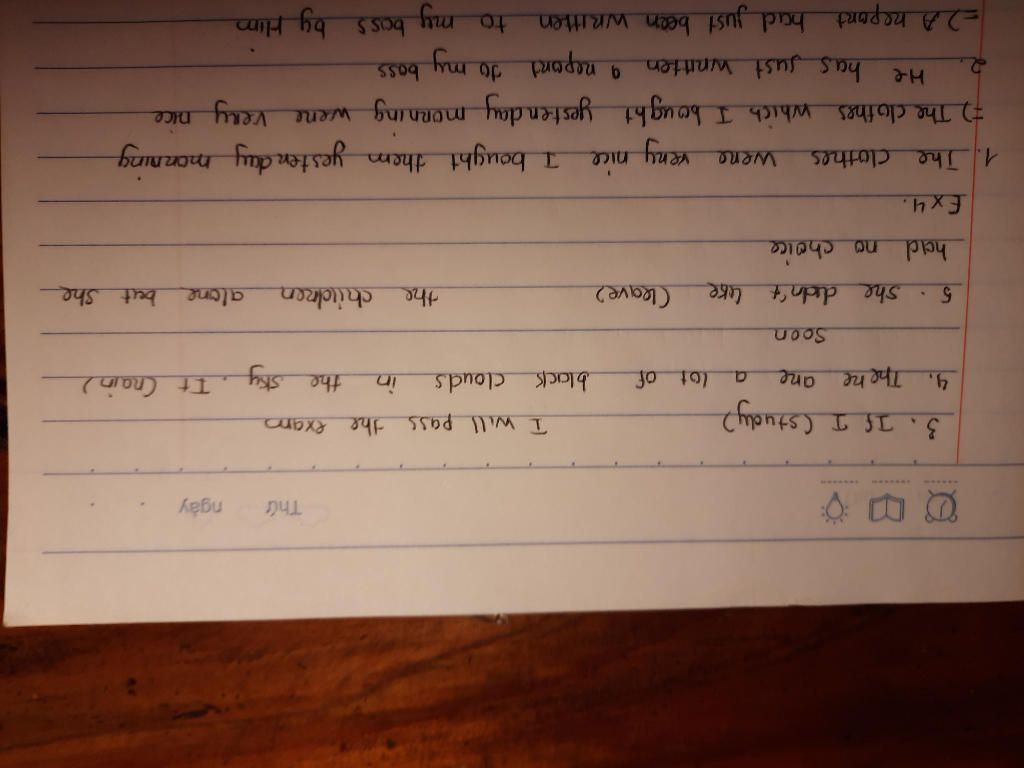 Thứ ngày
3. If I (study) I will pass the exam
4. There are a lot of black clouds in the sky. It (rain)
soon
5. She didn't like (leave) the children alone but she
had no choice
Ex 4.
1. The clothes were very nice I bought them yesterday morning
=) The clothes which I bought yesterday morning were very nice
2. He has just written a report to my boss
=) A report had just been written to my boss by Him